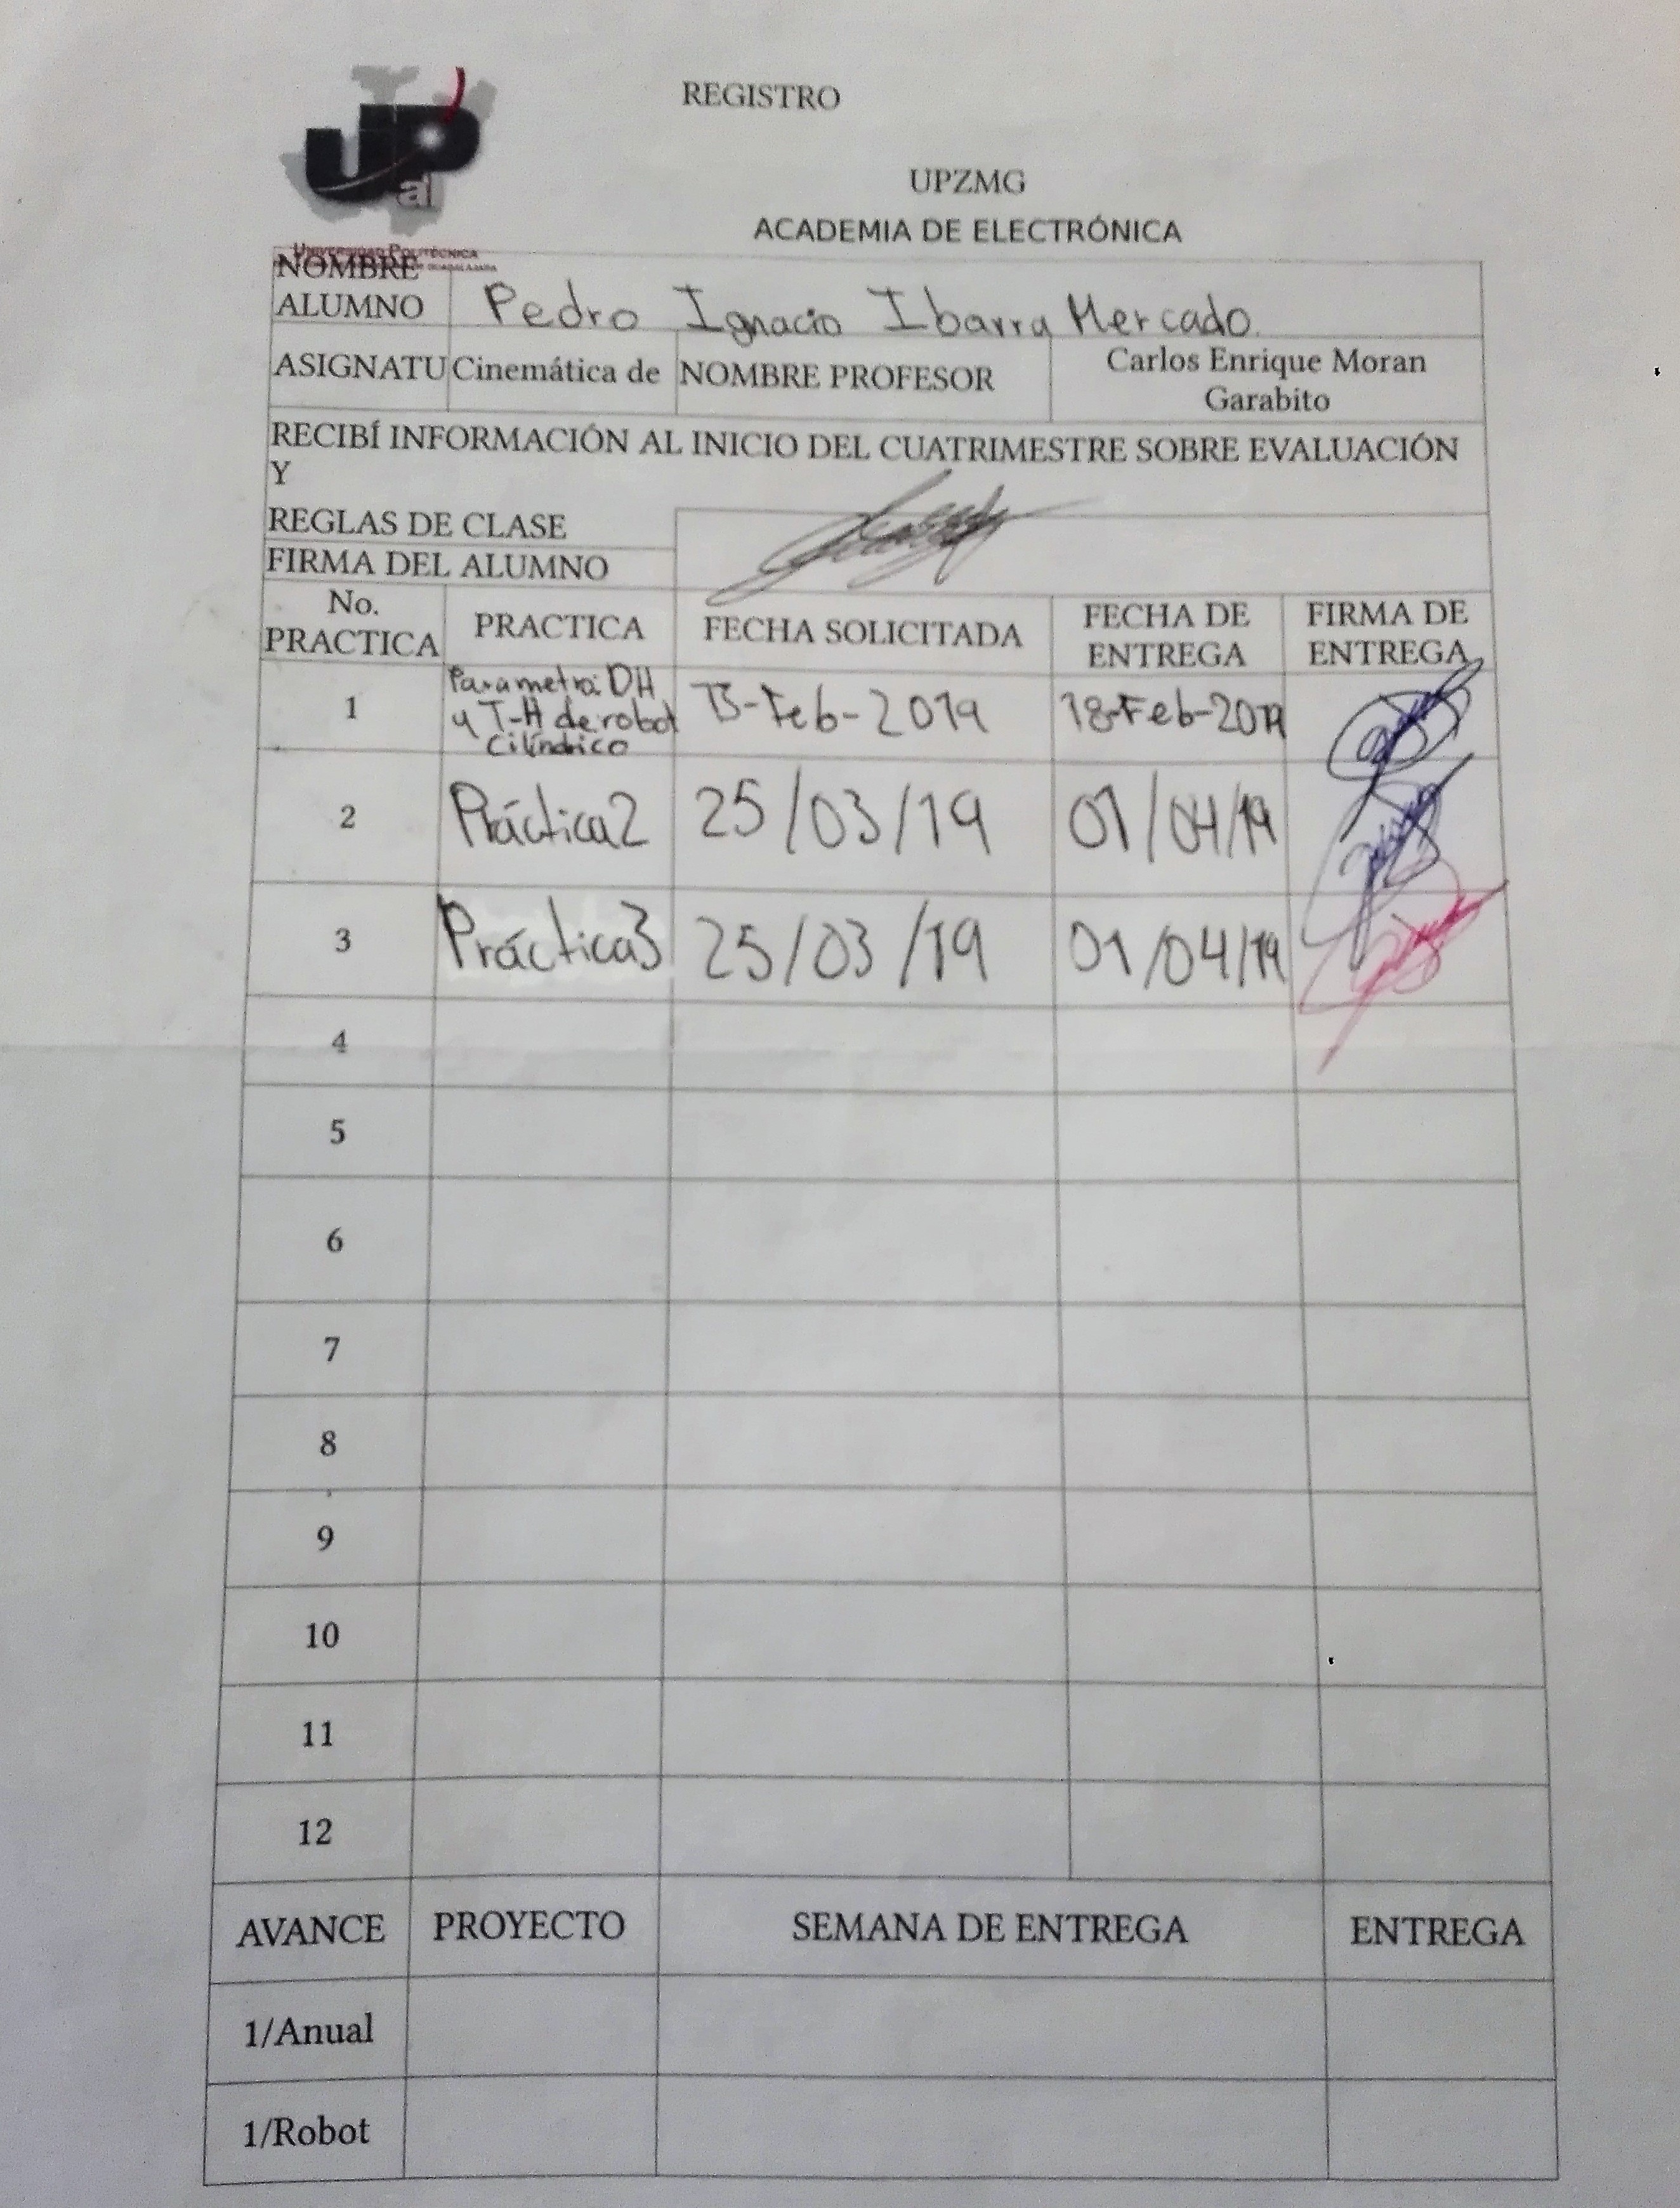 REGISTRO
UPZMG
ACADEMIA DE ELECTRÓNICA
UP
al
UNIVERSIDAD POLITÉCNICA
NOMBRE
ALUMNO Pedro Ignacio Ibarra Mercado.
ASIGNATU Cinemática de NOMBRE PROFESOR Carlos Enrique Moran
Garabito
RECIBÍ INFORMACIÓN AL INICIO DEL CUATRIMESTRE SOBRE EVALUACIÓN
Y
REGLAS DE CLASE
FIRMA DEL ALUMNO
No.
PRACTICA PRACTICA FECHA SOLICITADA FECHA DE
ENTREGA FIRMA DE
ENTREGA
1 Parametro DH
y T-H de robot
Cilíndrico
-Feb-2019 18-Feb-2019
2 Práctica2 25/03/19 01/04/19
3 Práctica3 25/03/19 01/04/19
4
5
6
7
8
9
10
11
12
AVANCE PROYECTO SEMANA DE ENTREGA ENTREGA
1/Anual
1/Robot